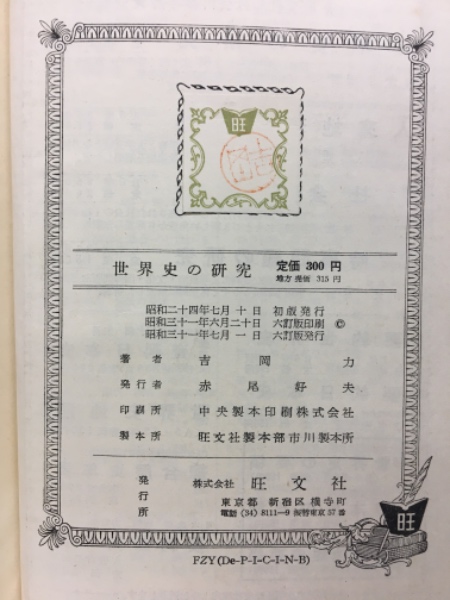 旺
世界史の研究 定価 300 円
地方売価 315 円
昭和二十四年七月 十日 初版発行
昭和三十一年六月二十日 六訂版印刷 ©
昭和三十一年七月 一日 六訂版発行
著者 吉岡力
発行者 赤尾好夫
印刷所 中央製本印刷株式会社
製本所 旺文社製本部市川製本所
発行所 株式会社 旺文社
東京都 新宿区 横寺町
電話 (34) 8111―9 振替東京 57 番
旺
FZY(De-P-I-C-I-N-B)